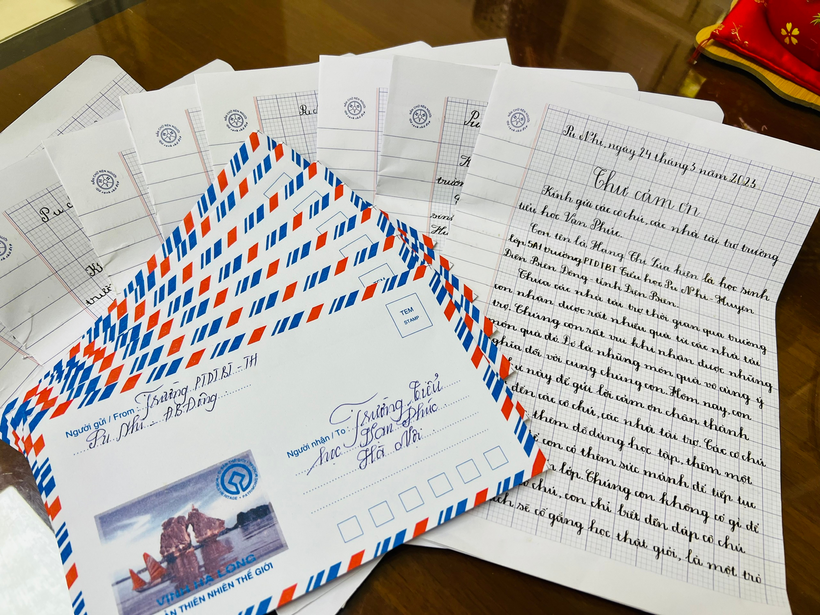 Pu Nhi, ngày 24 tháng 3 năm 2023
Thư cảm ơn
Kính gửi các cô chú, các nhà tài trợ, trường
tiểu học Vạn Phúc.
Con tên là Hàng Thị Lúa hiện là học sinh
lớp 5A1 trường PTDTBT Tiểu học Pu Nhi - Huyện
Điện Biên Đông - tỉnh Điện Biên.
Thưa các nhà tài trợ thời gian qua trường
con nhận được rất nhiều quà từ các nhà tài
trợ. Chúng con rất vui khi nhận được những
món quà đó. Đó là những món quà vô cùng ý
nghĩa đối với cung chúng con. Hôm nay, con
này để gửi lời cảm ơn chân thành
đến các cô chú, các nhà tài trợ. Các cô chú
thêm đồ dùng học tập, thêm một
con có thêm sức mạnh để tiếp tục
lớp. Chúng con không có gì để
chú, con chỉ biết đền đáp cô chú
sẽ cố gắng học thật giỏi, là một trò
TEM
STAMP
Người gửi / From: Trường PTDTBT - TH
Pu Nhi - ĐB Đông
Người nhận / To: Trường Tiểu
học Vạn Phúc
Hà Nội
VỊNH HẠ LONG
SẢN THIÊN NHIÊN THẾ GIỚI